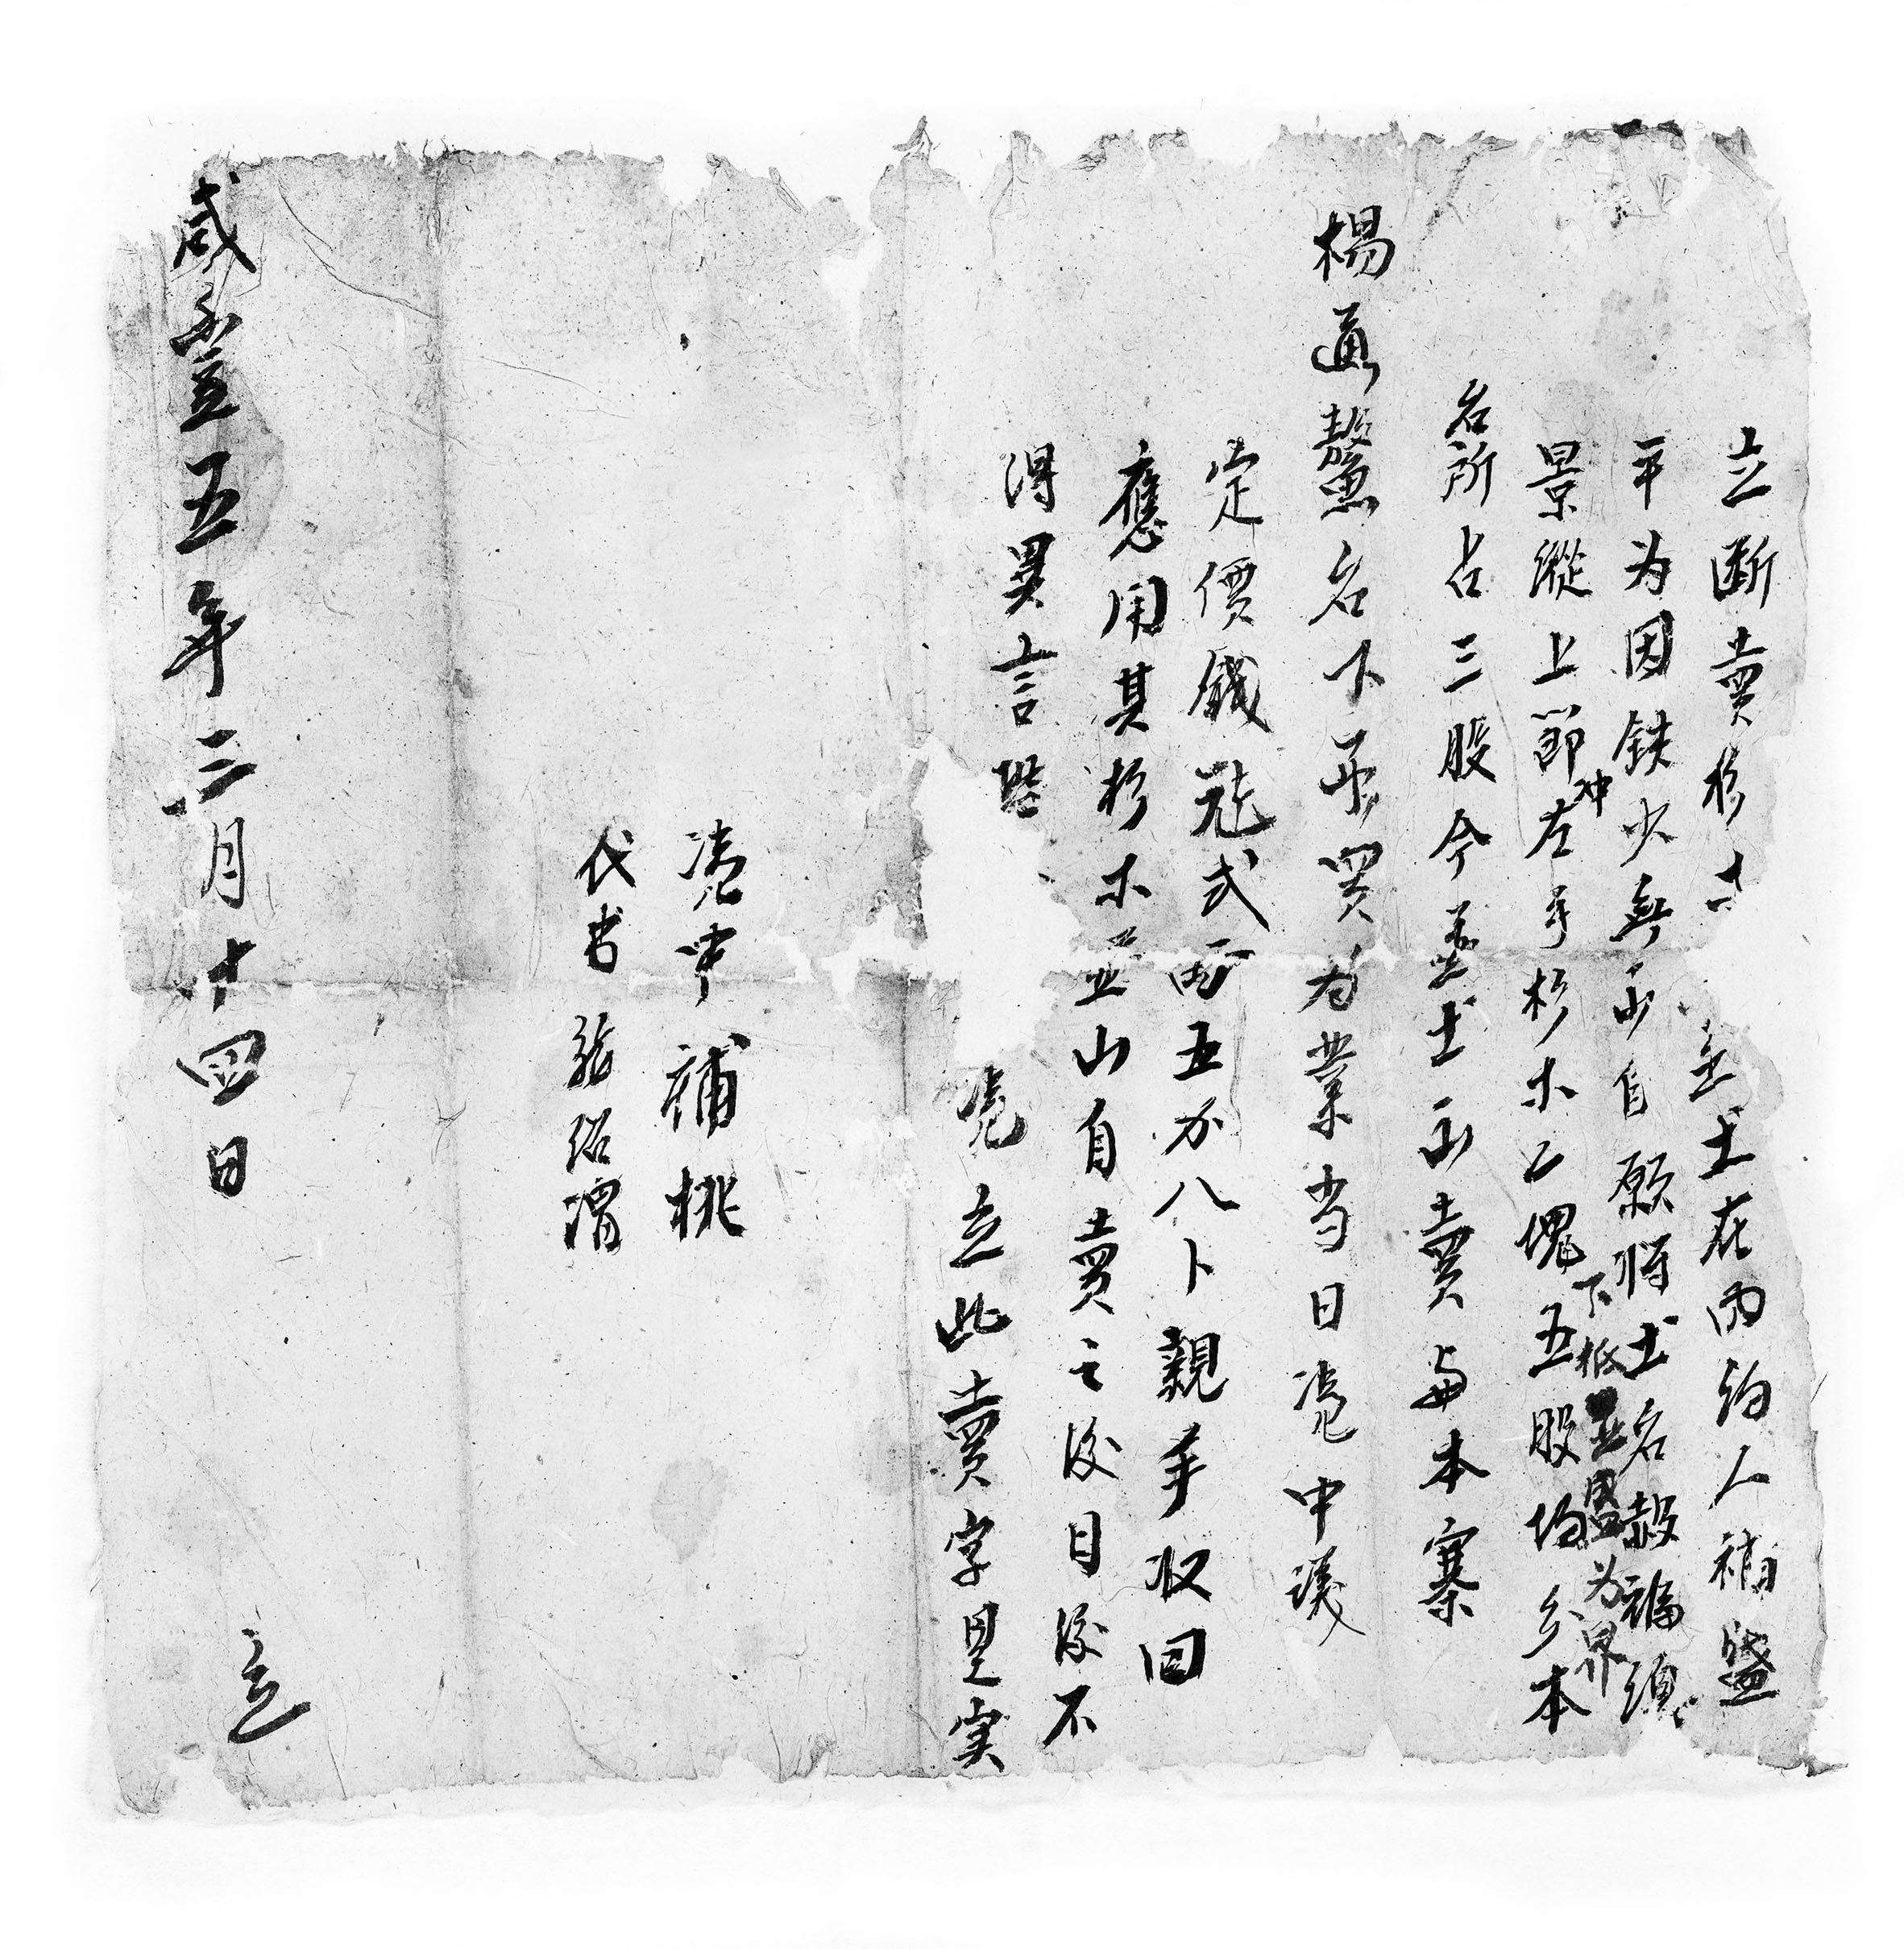 立断賣杉木　並土在內約人補盤
平为因缺少無出自願将土名赧褔須
冲　下抵　盛为界
景縱上節左手杉木乙塊五股均分本
名所占三股今並土出賣与本寨
楊通鰲名下承買为業当日凴中議
定價錢式両五分八卜親手收回
應用其杉木並山自賣之後日後不
得異言　凴立此賣字是实
凴中補桃
代書　紹渭
咸豐五年三月十四日　立